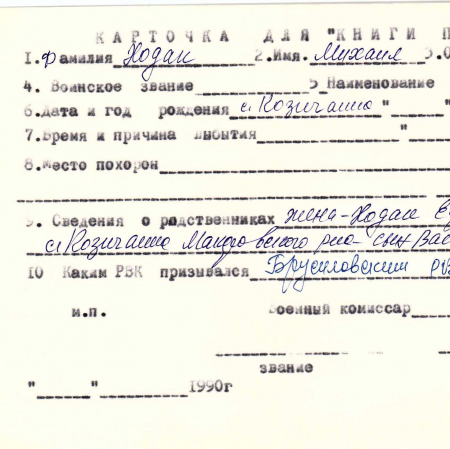 КАРТОЧКА ДЛЯ "КНИГИ П
1.Фамилия Ходак 2.Имя. Михаил 3.О
4. Воинское звание 5 Наименование
6.Дата и год рождения с. Козичанка " "
7.Время и причина выбытия "
8.Место похорон
9. Сведения о родственниках жена - Ходак Е
с. Козичанка Макаровского р-на - сын Вас
10 Каким РВК призывался Брусиловским РВ
м.п. Военный комиссар
звание
"____"________1990г